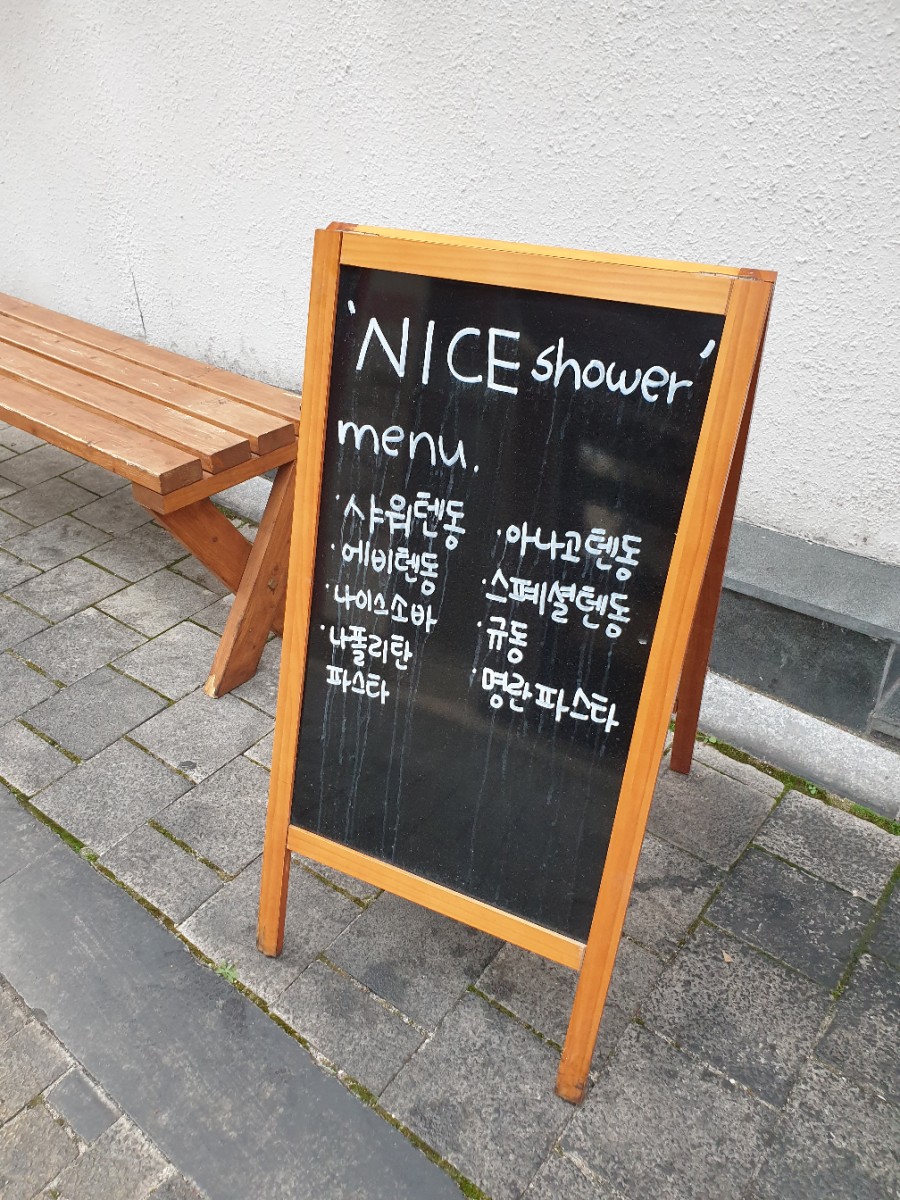 'NICE shower'
menu.
· 샤워텐동
· 에비텐동
· 나이스소바
· 나폴리탄
파스타
· 아나고텐동
· 스페셜텐동
· 규동
· 명란파스타